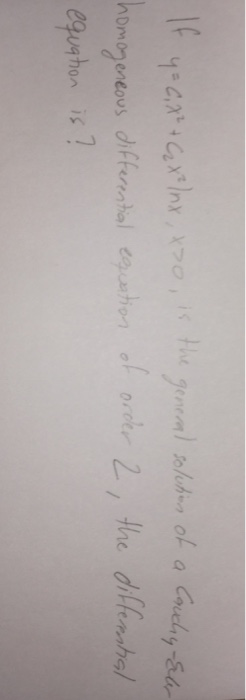 If y = c₁x² + c₂x² lnx, x>0, is the general solution of a Cauchy-Euler
homogeneous differential equation of order 2, the differential
equation is?